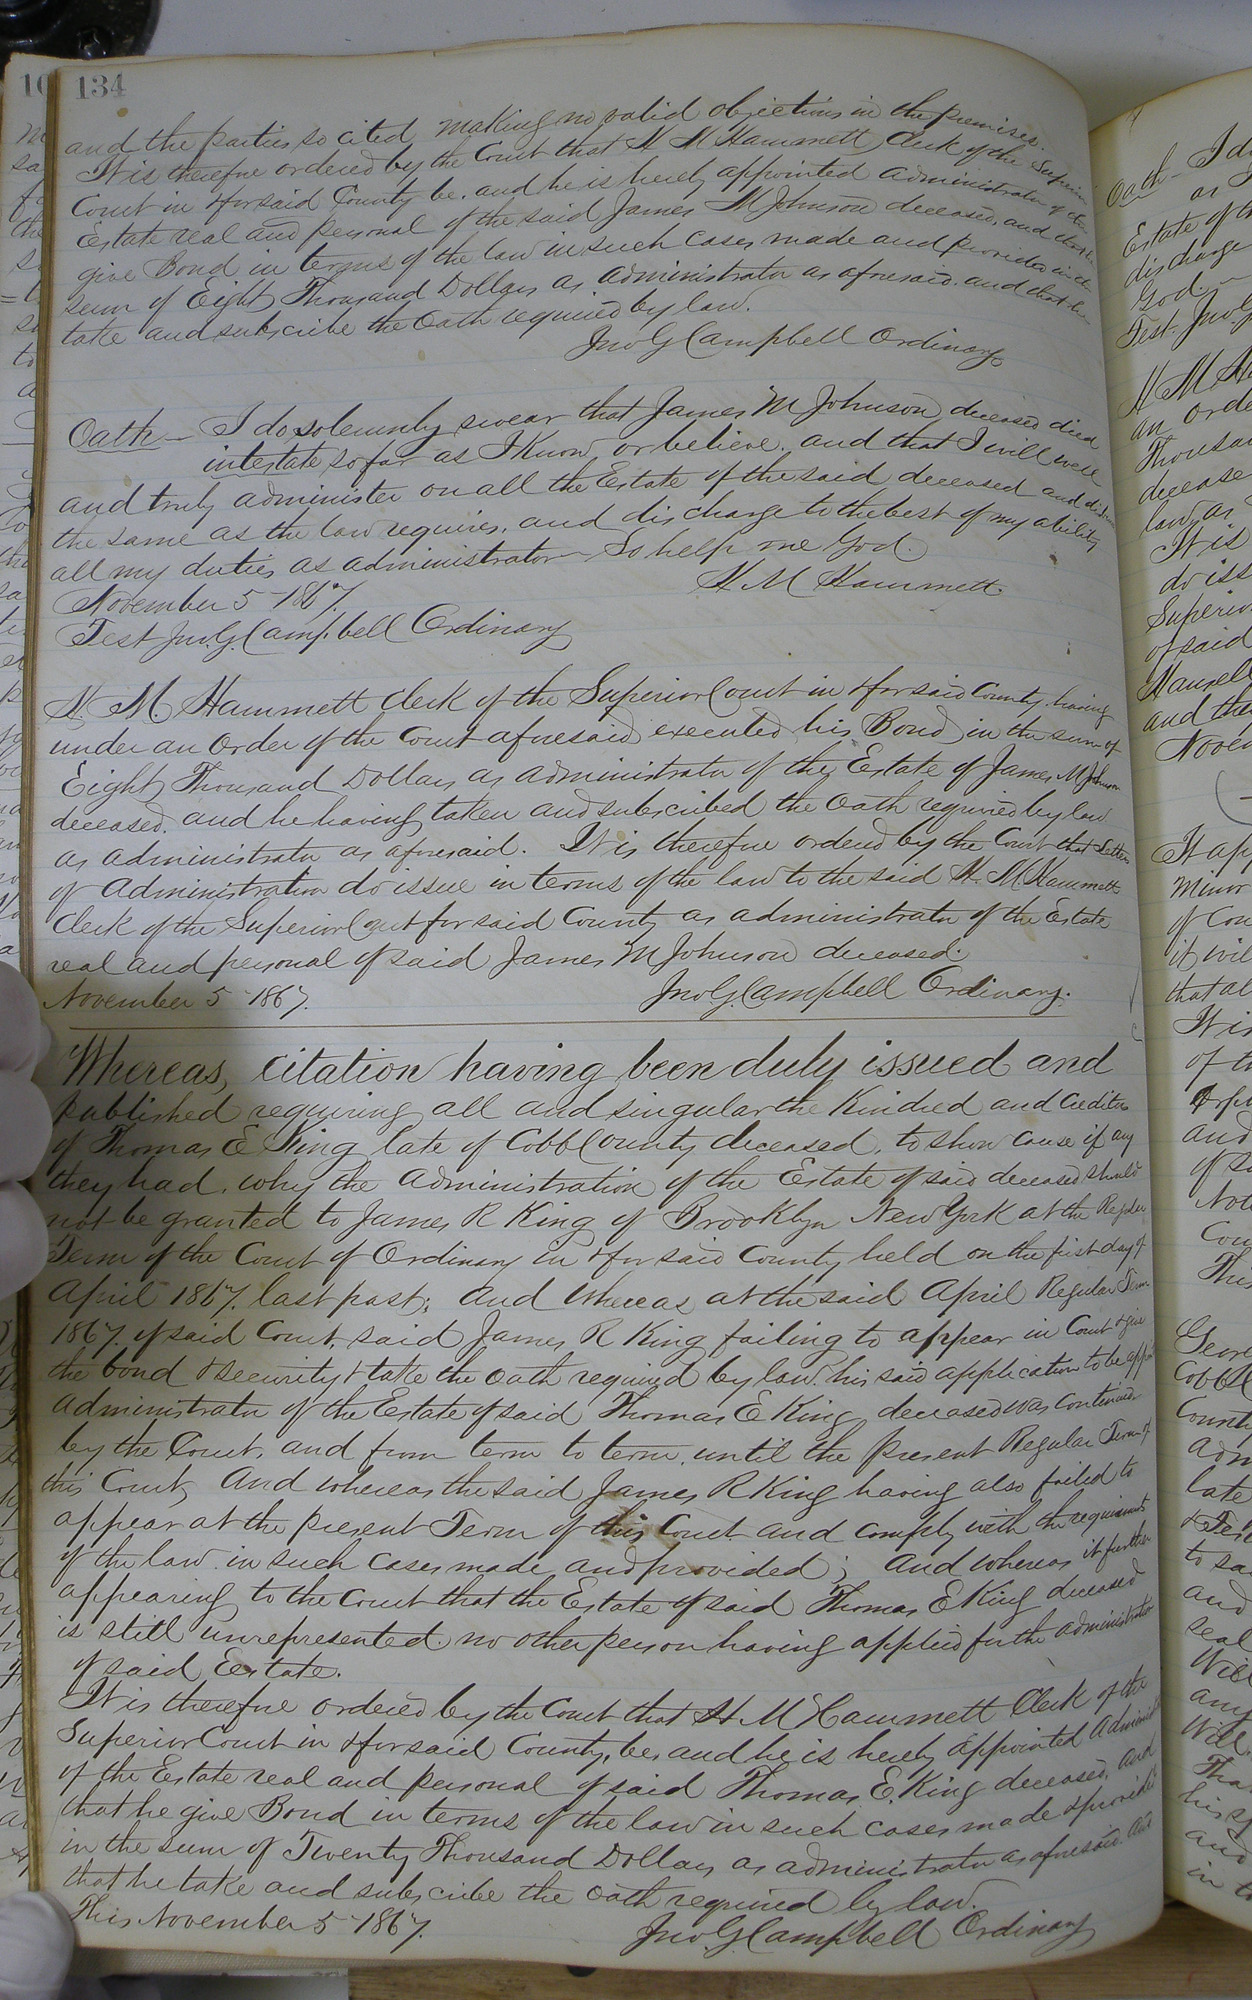 134
and the parties so cited making no valid objections in the premises.
It is therefore ordered by the Court that H M Hammett Clerk of the Superior
Court in & for said County be, and he is hereby appointed administrator of the
Estate real and personal of the said James M Johnson deceased, and that he
give Bond in terms of the law in such cases made and provided in the
sum of Eight Thousand Dollars as administrator as aforesaid. and that he
take and subscribe the Oath required by law.
Jno G Campbell Ordinary
Oath - I do solemnly swear that James M Johnson deceased died
intestate so far as I Know or believe. and that I will well
and truly administer on all the Estate of the said deceased and
the same as the law requires. and discharge to the best of my ability
all my duties as administrator - So help me God.
November 5 - 1867. H M Hammett.
Test Jno. G. Campbell Ordinary
H. M. Hammett Clerk of the Superior Court in & for said County having
under an order of the Court aforesaid executed his Bond in the sum of
Eight Thousand Dollars as administrator of the Estate of James M Johnson
deceased. and he having taken and subscribed the oath required by law
as administrator as aforesaid. It is therefore ordered by the Court that Letters
of Administration do issue in terms of the law to the said H. M Hammett
Clerk of the Superior Court for said County as administrator of the Estate
real and personal of said James M Johnson deceased.
November 5 - 1867. Jno. G. Campbell Ordinary.
Whereas, citation having been duly issued and
published requiring all and singular the Kindred and Creditors
of Thomas E King late of Cobb County deceased, to show cause if any
they had, why the administration of the Estate of said deceased should
not be granted to James R King of Brooklyn New York at the Regular
Term of the Court of Ordinary in & for said County held on the first day of
April 1867. last past; and whereas at the said April Regular Term
1867. of said Court, said James R King failing to appear in Court & give
the bond & security & take the oath required by law. his said application to be
administrator of the Estate of said Thomas E King deceased was continued
by the Court, and from term to term, until the present Regular Term of
this Court, and whereas the said James R King having also failed to
appear at the present Term of this Court and comply with the requirements
of the law in such cases made and provided; and whereas it further
appearing to the Court that the Estate of said Thomas E King deceased
is still unrepresented. no other person having applied for the administration
of said Eestate.
It is therefore ordered by the Court that H M Hammett Clerk of the
Superior Court in & for said County, be, and he is hereby appointed
of the Estate real and personal of said Thomas E. King deceased, and
that he give Bond in terms of the law in such cases made & provided
in the sum of Twenty Thousand Dollars as administrator as aforesaid. and
that he take and subscribe the oath required by law.
This November 5 - 1867. Jno G Campbell Ordinary